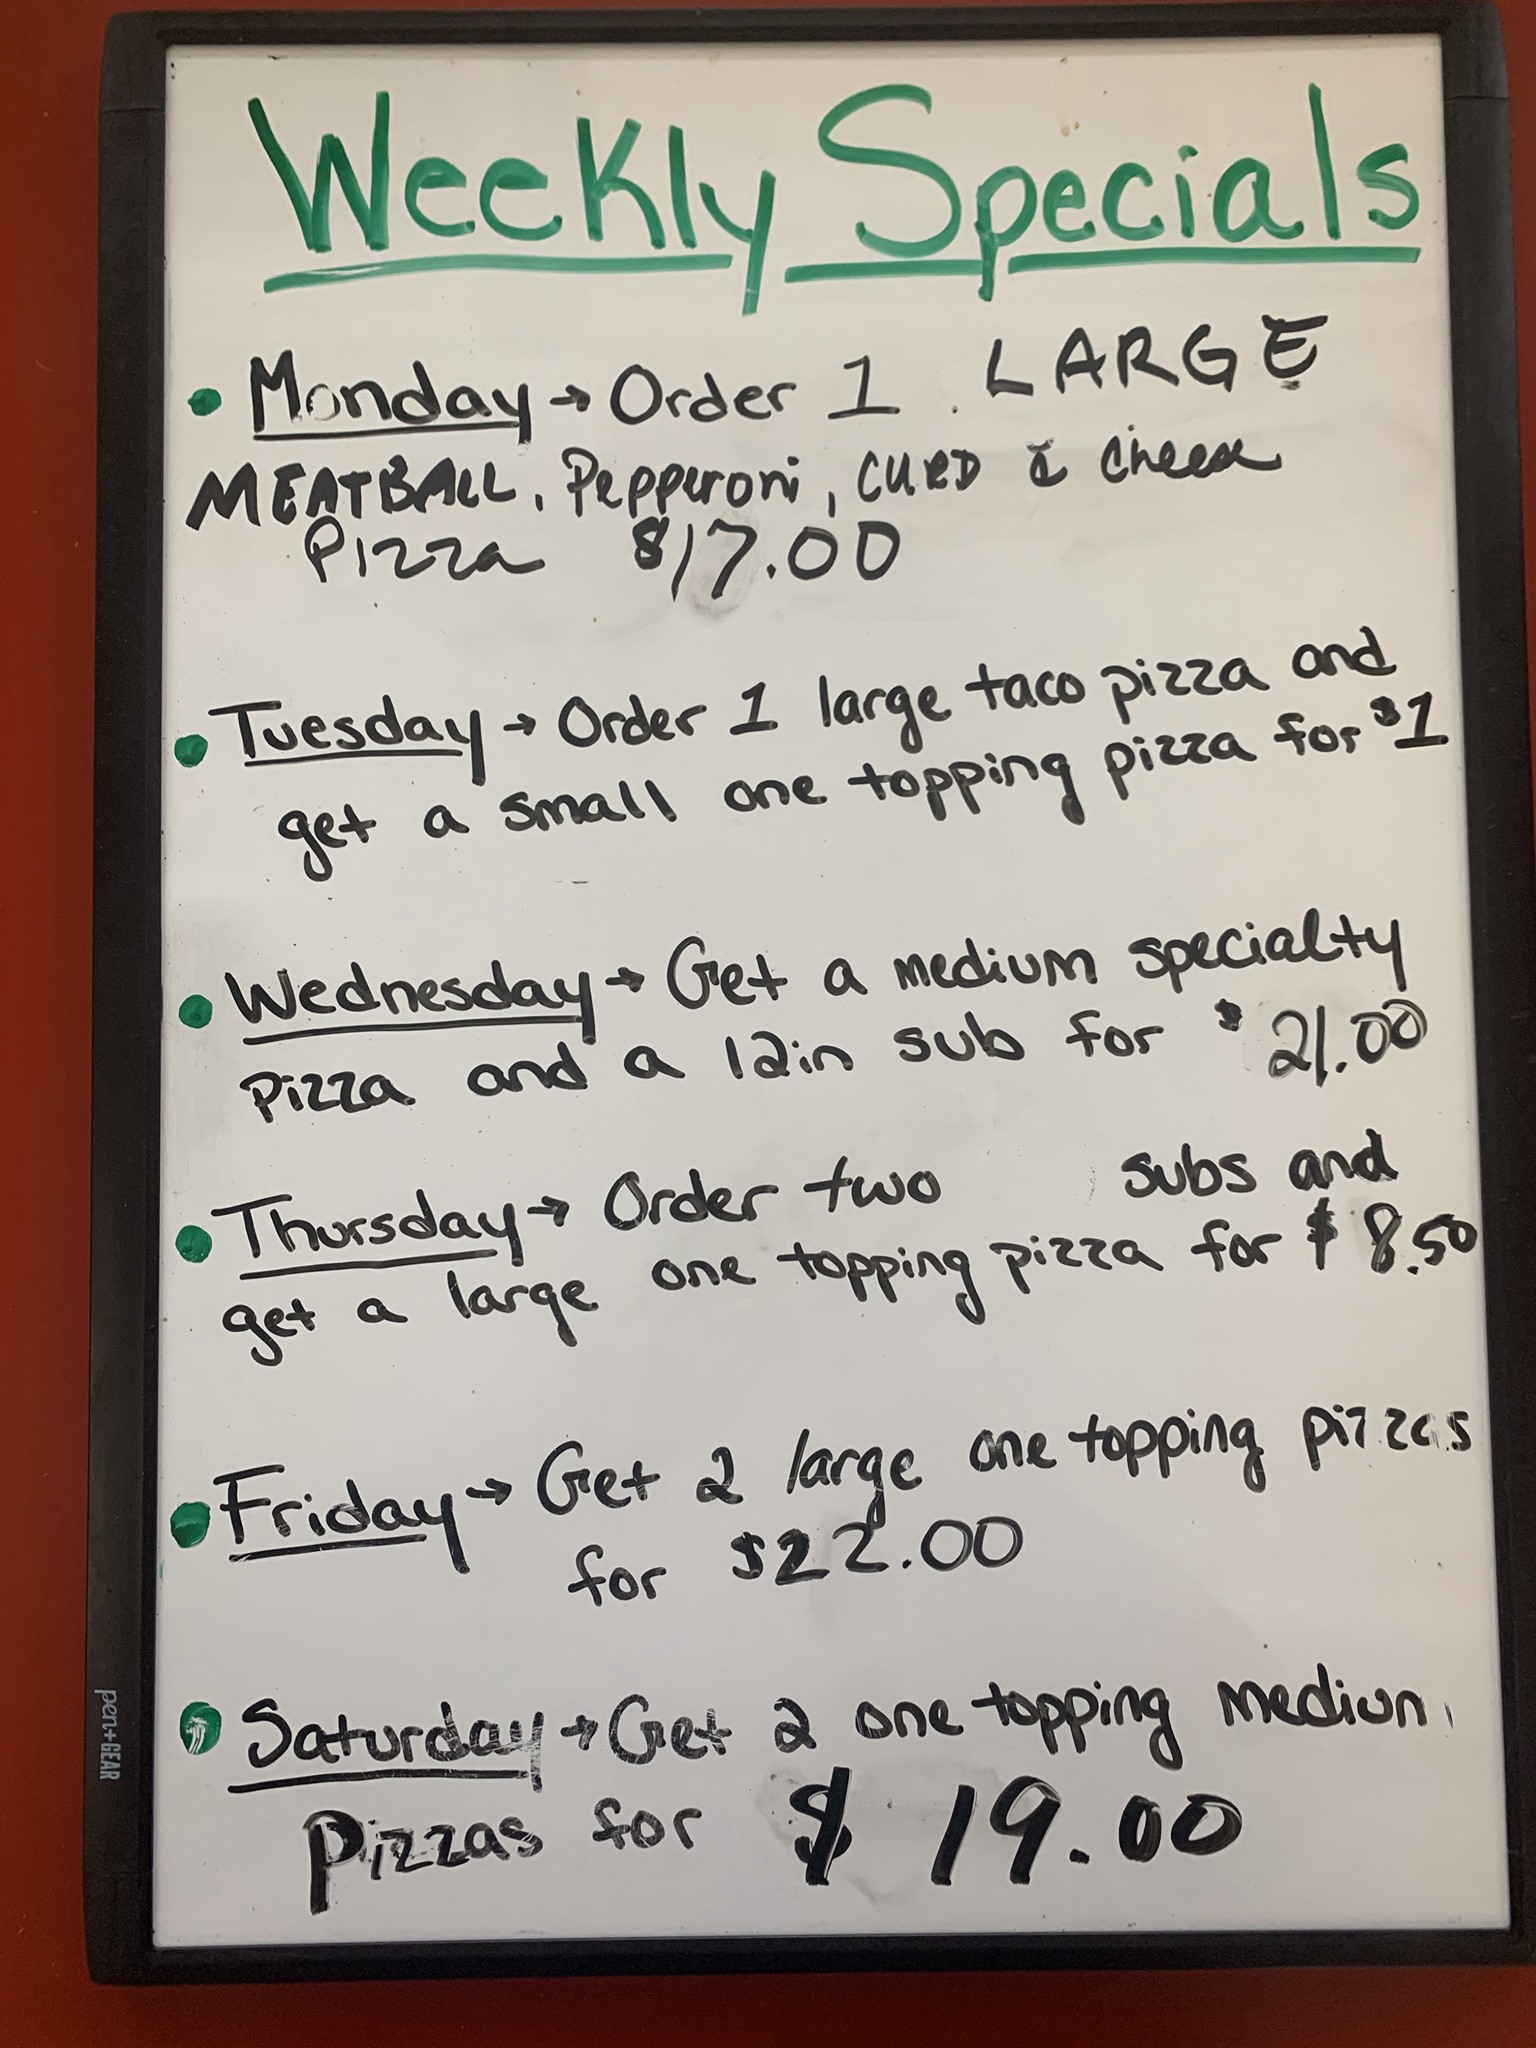 Weekly Specials
• Monday → Order 1 LARGE
MEATBALL, Pepperoni, CURD & Cheese
Pizza $17.00
• Tuesday → Order 1 large taco pizza and
get a small one topping pizza for $1
• Wednesday → Get a medium specialty
pizza and a 12in sub for $21.00
• Thursday → Order two subs and
get a large one topping pizza for $8.50
• Friday → Get 2 large one topping pizzas
for $22.00
• Saturday → Get 2 one topping medium
Pizzas for $19.00
pen+GEAR